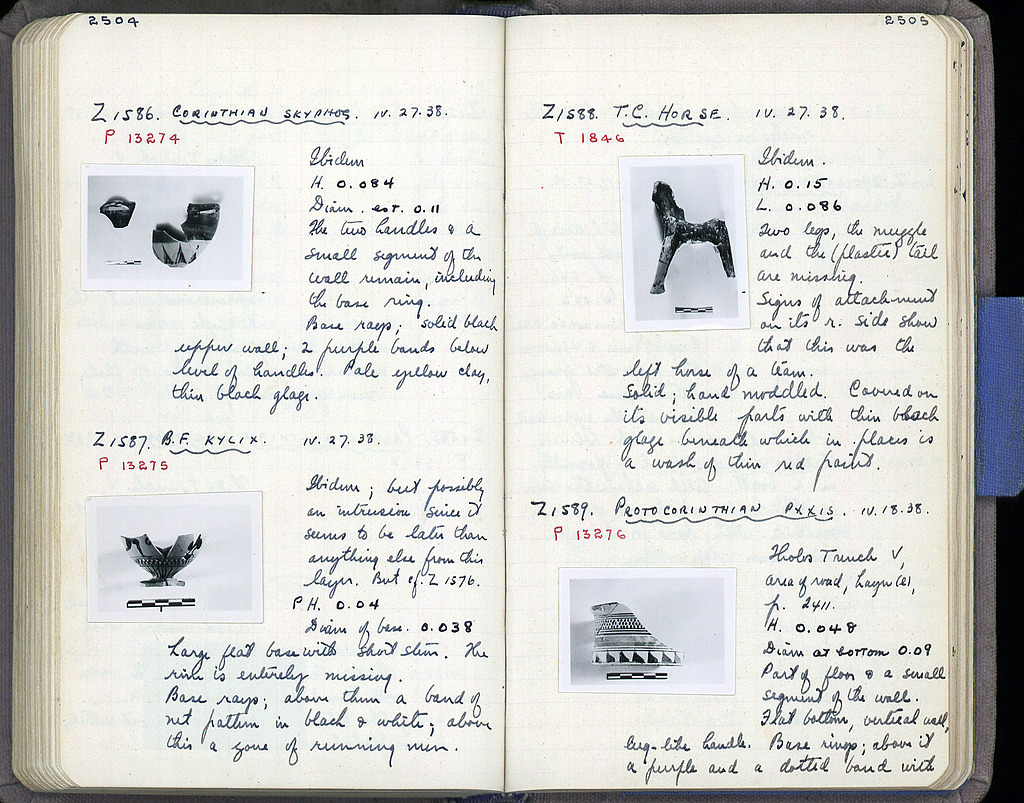 2504
Z 1586. CORINTHIAN SKYPHOS. IV. 27. 38.
P 13274
Ibidem
H. 0.084
Diam. est. 0.11
The two handles & a
small segment of the
wall remain, including
the base ring.
Base rays; solid black
upper wall; 2 purple bands below
level of handles. Pale yellow clay,
thin black glaze.
Z 1587. B.F. KYLIX. IV. 27. 38.
P 13275
Ibidem; but possibly
an intrusion since it
seems to be later than
anything else from this
layer. But cf. Z 1576.
P H. 0.04
Diam of base. 0.038
Large flat base with short stem. The
rim is entirely missing.
Base rays; above them a band of
net pattern in black & white; above
this a zone of running men.
2505
Z 1588. T.C. HORSE. IV. 27. 38.
T 1846
Ibidem.
H. 0.15
L. 0.086
Two legs, the muzzle
and the (plaster) tail
are missing.
Signs of attachment
on its r. side show
that this was the
left horse of a team.
Solid; hand moddled. Covered on
its visible parts with thin black
glaze beneath which in places is
a wash of thin red paint.
Z 1589. PROTOCORINTHIAN PYXIS. IV. 18. 38.
P 13276
Tholos Trench V,
area of road, layer (e),
p. 2411.
H. 0.048
Diam at bottom 0.09
Part of floor & a small
segment of the wall.
Flat bottom, vertical wall,
lug-like handle. Base rings; above it
a purple and a dotted band with